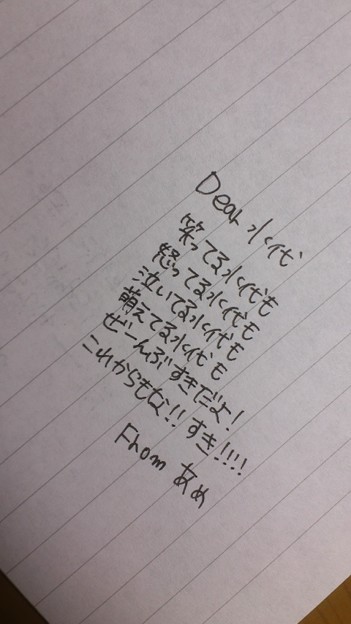 Dear 氷代
笑ってる氷代も
怒ってる氷代も
泣いてる氷代も
萌えてる氷代も
ぜーんぶすきだよ!
これからもな!! すき!!!!
From あめ